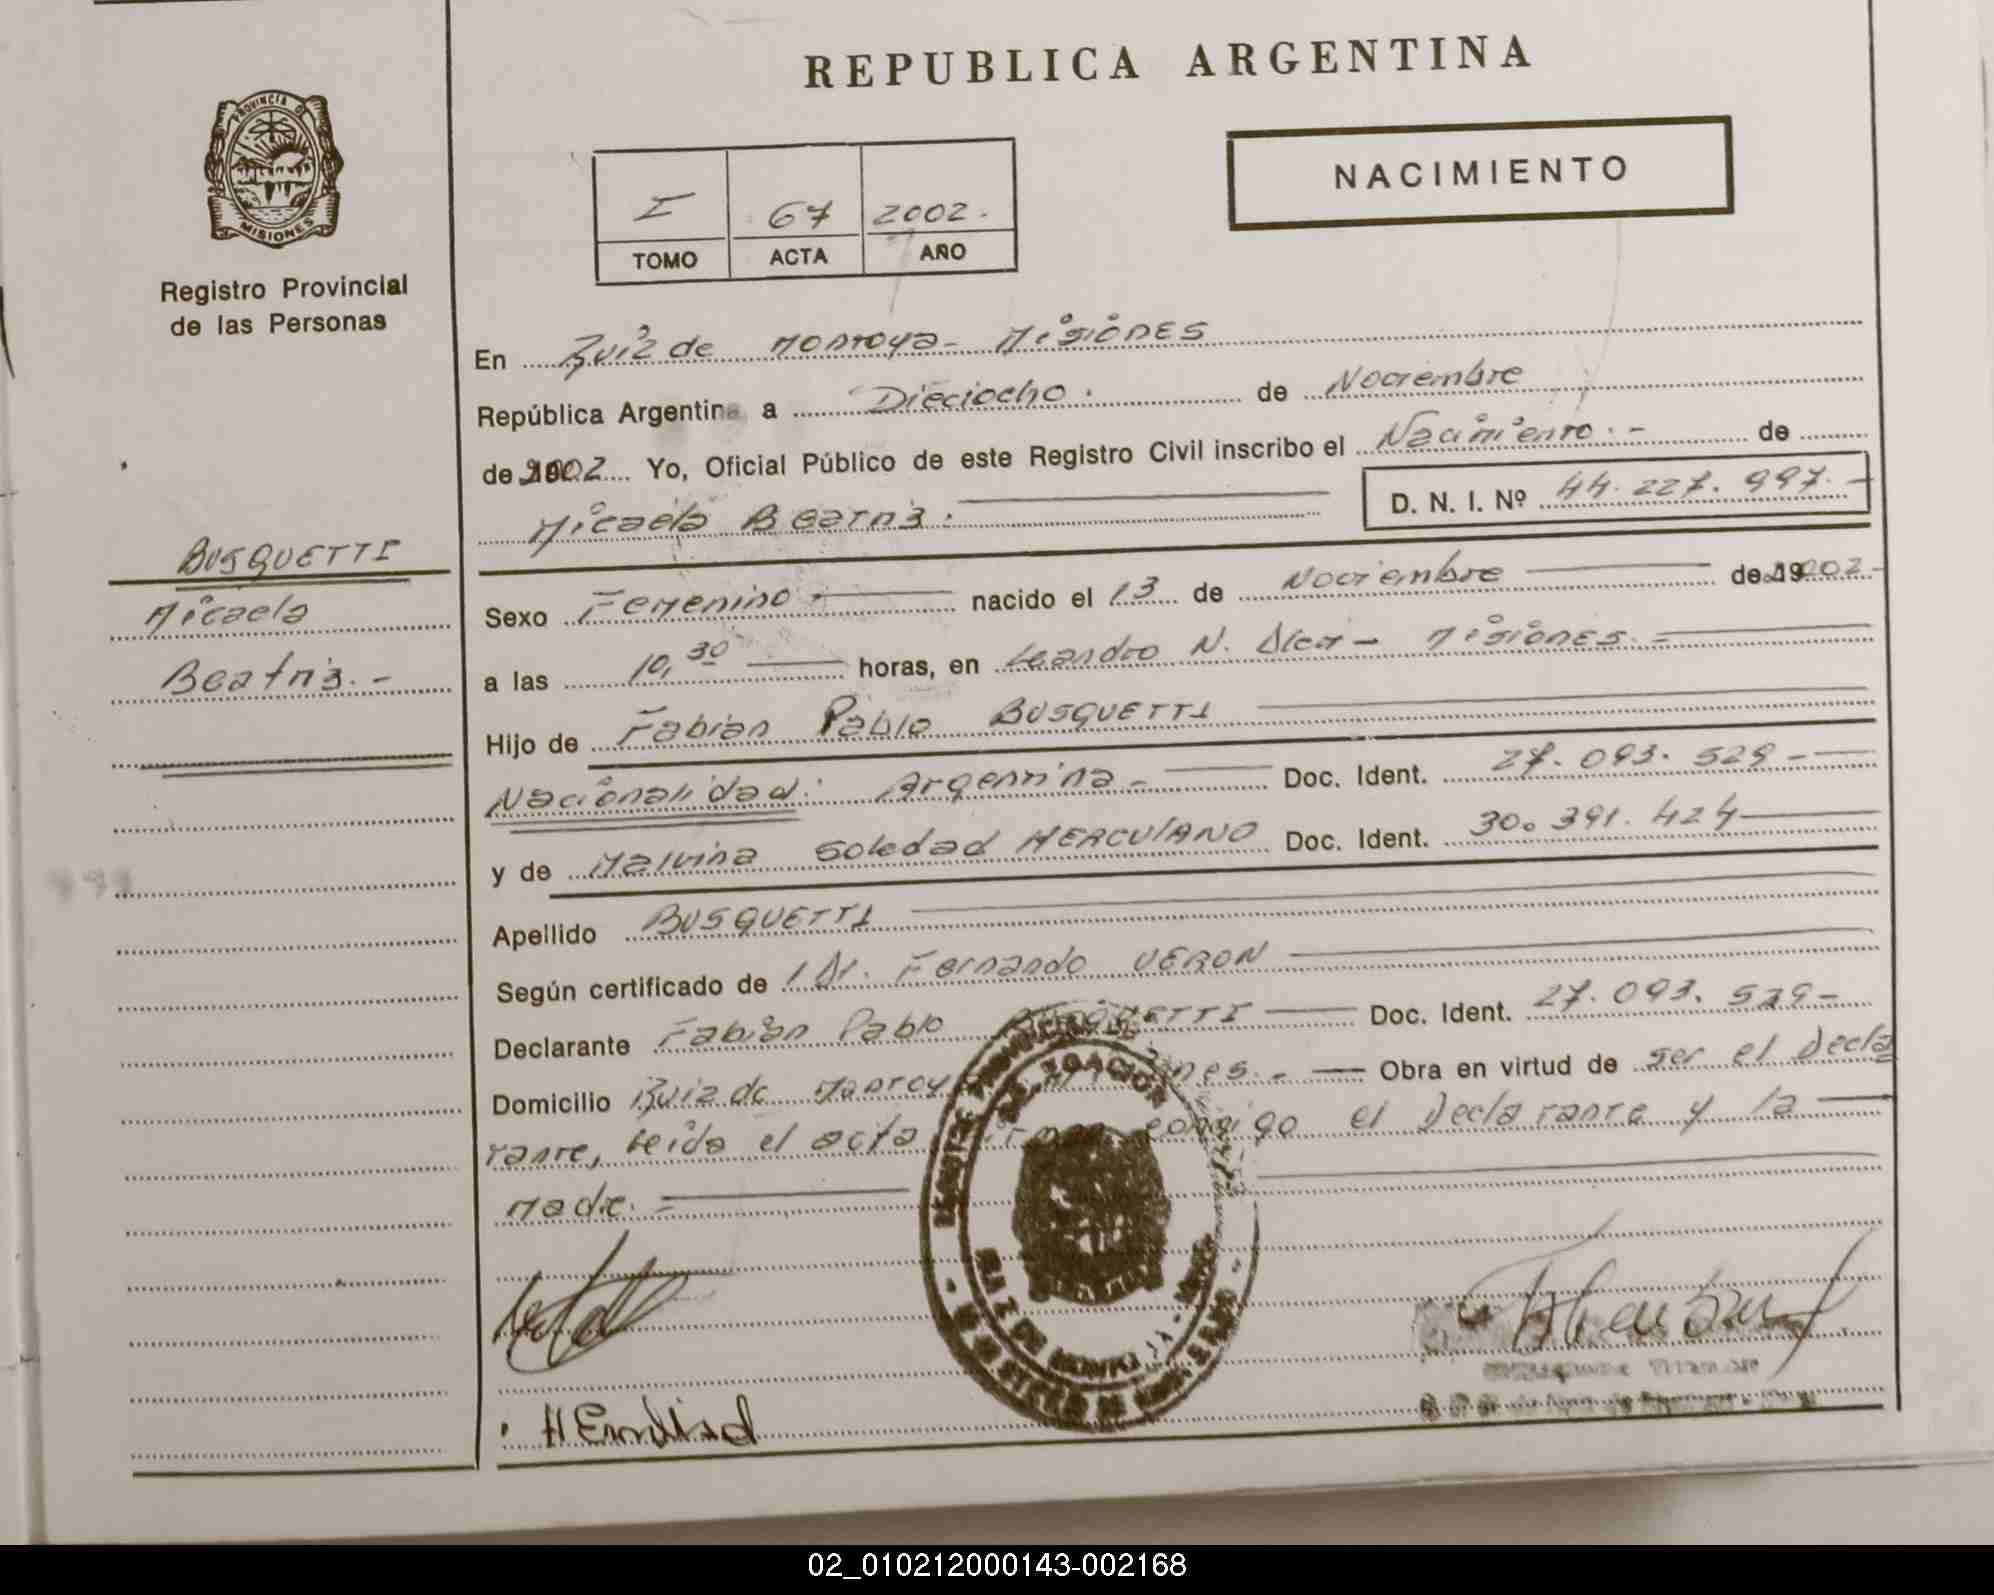 REPUBLICA ARGENTINA
PROVINCIA DE
MISIONES
Registro Provincial
de las Personas
I 67 2002.
TOMO ACTA AÑO
NACIMIENTO
En Ruiz de Montoya - Misiones
República Argentina a Dieciocho. de Noviembre
de 2002 Yo, Oficial Público de este Registro Civil inscribo el Nacimiento. - de
Micaela Beatriz. D. N. I. Nº 44.227.997. -
BUSQUETTI
Micaela
Beatriz. -
Sexo Femenino - nacido el 13 de Noviembre de 2002 -
a las 10,30 horas, en Leandro N. Alem - Misiones. =
Hijo de Fabian Pablo BUSQUETTI
Nacionalidad: Argentina - Doc. Ident. 27.093.529 -
y de Malvina Soledad MERCULANO Doc. Ident. 30.391.424
Apellido BUSQUETTI
Según certificado de Dr. Fernando VERON
Declarante Fabian Pablo BUSQUETTI Doc. Ident. 27.093.529 -
Domicilio Ruiz de Montoya Misiones. - Obra en virtud de ser el Decla
rante, leida el acta firman conmigo el Declarante y la
Madre. =
02_010212000143-002168